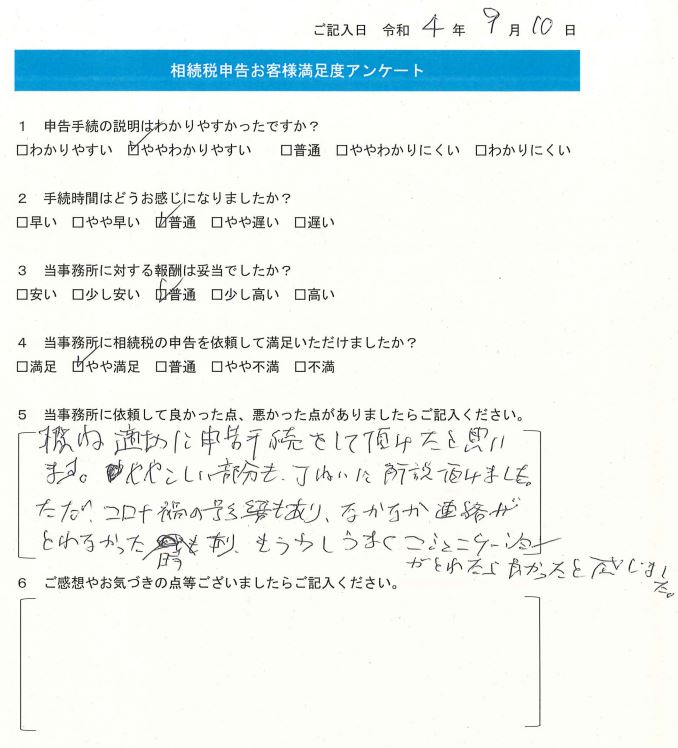 ご記入日 令和 4 年 9 月 10 日
相続税申告お客様満足度アンケート
1 申告手続の説明はわかりやすかったですか？
□わかりやすい ☑ややわかりやすい □普通 □ややわかりにくい □わかりにくい
2 手続時間はどうお感じになりましたか？
□早い □やや早い ☑普通 □やや遅い □遅い
3 当事務所に対する報酬は妥当でしたか？
□安い □少し安い ☑普通 □少し高い □高い
4 当事務所に相続税の申告を依頼して満足いただけましたか？
□満足 ☑やや満足 □普通 □やや不満 □不満
5 当事務所に依頼して良かった点、悪かった点がありましたらご記入ください。
概ね適切に申告手続をして頂けたと思い
ます。ややこしい部分も、丁ねいに解説頂けました。
ただ、コロナ禍の影響もあり、なかなか連絡が
とれなかった時もあり、もう少しうまくコミュニケーション
がとれたら良かったと感じました。
6 ご感想やお気づきの点等ございましたらご記入ください。